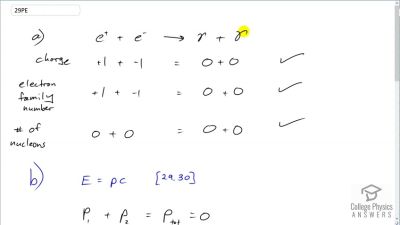 29PE
a) e⁺ + e⁻ → γ + γ
charge +1 + -1 = 0 + 0 ✓
electron family number +1 + -1 = 0 + 0 ✓
# of nucleons 0 + 0 = 0 + 0 ✓
b) E = pc [29.30]
P₁ + P₂ = Pₜₒₜ = 0
College Physics
ANSWERS